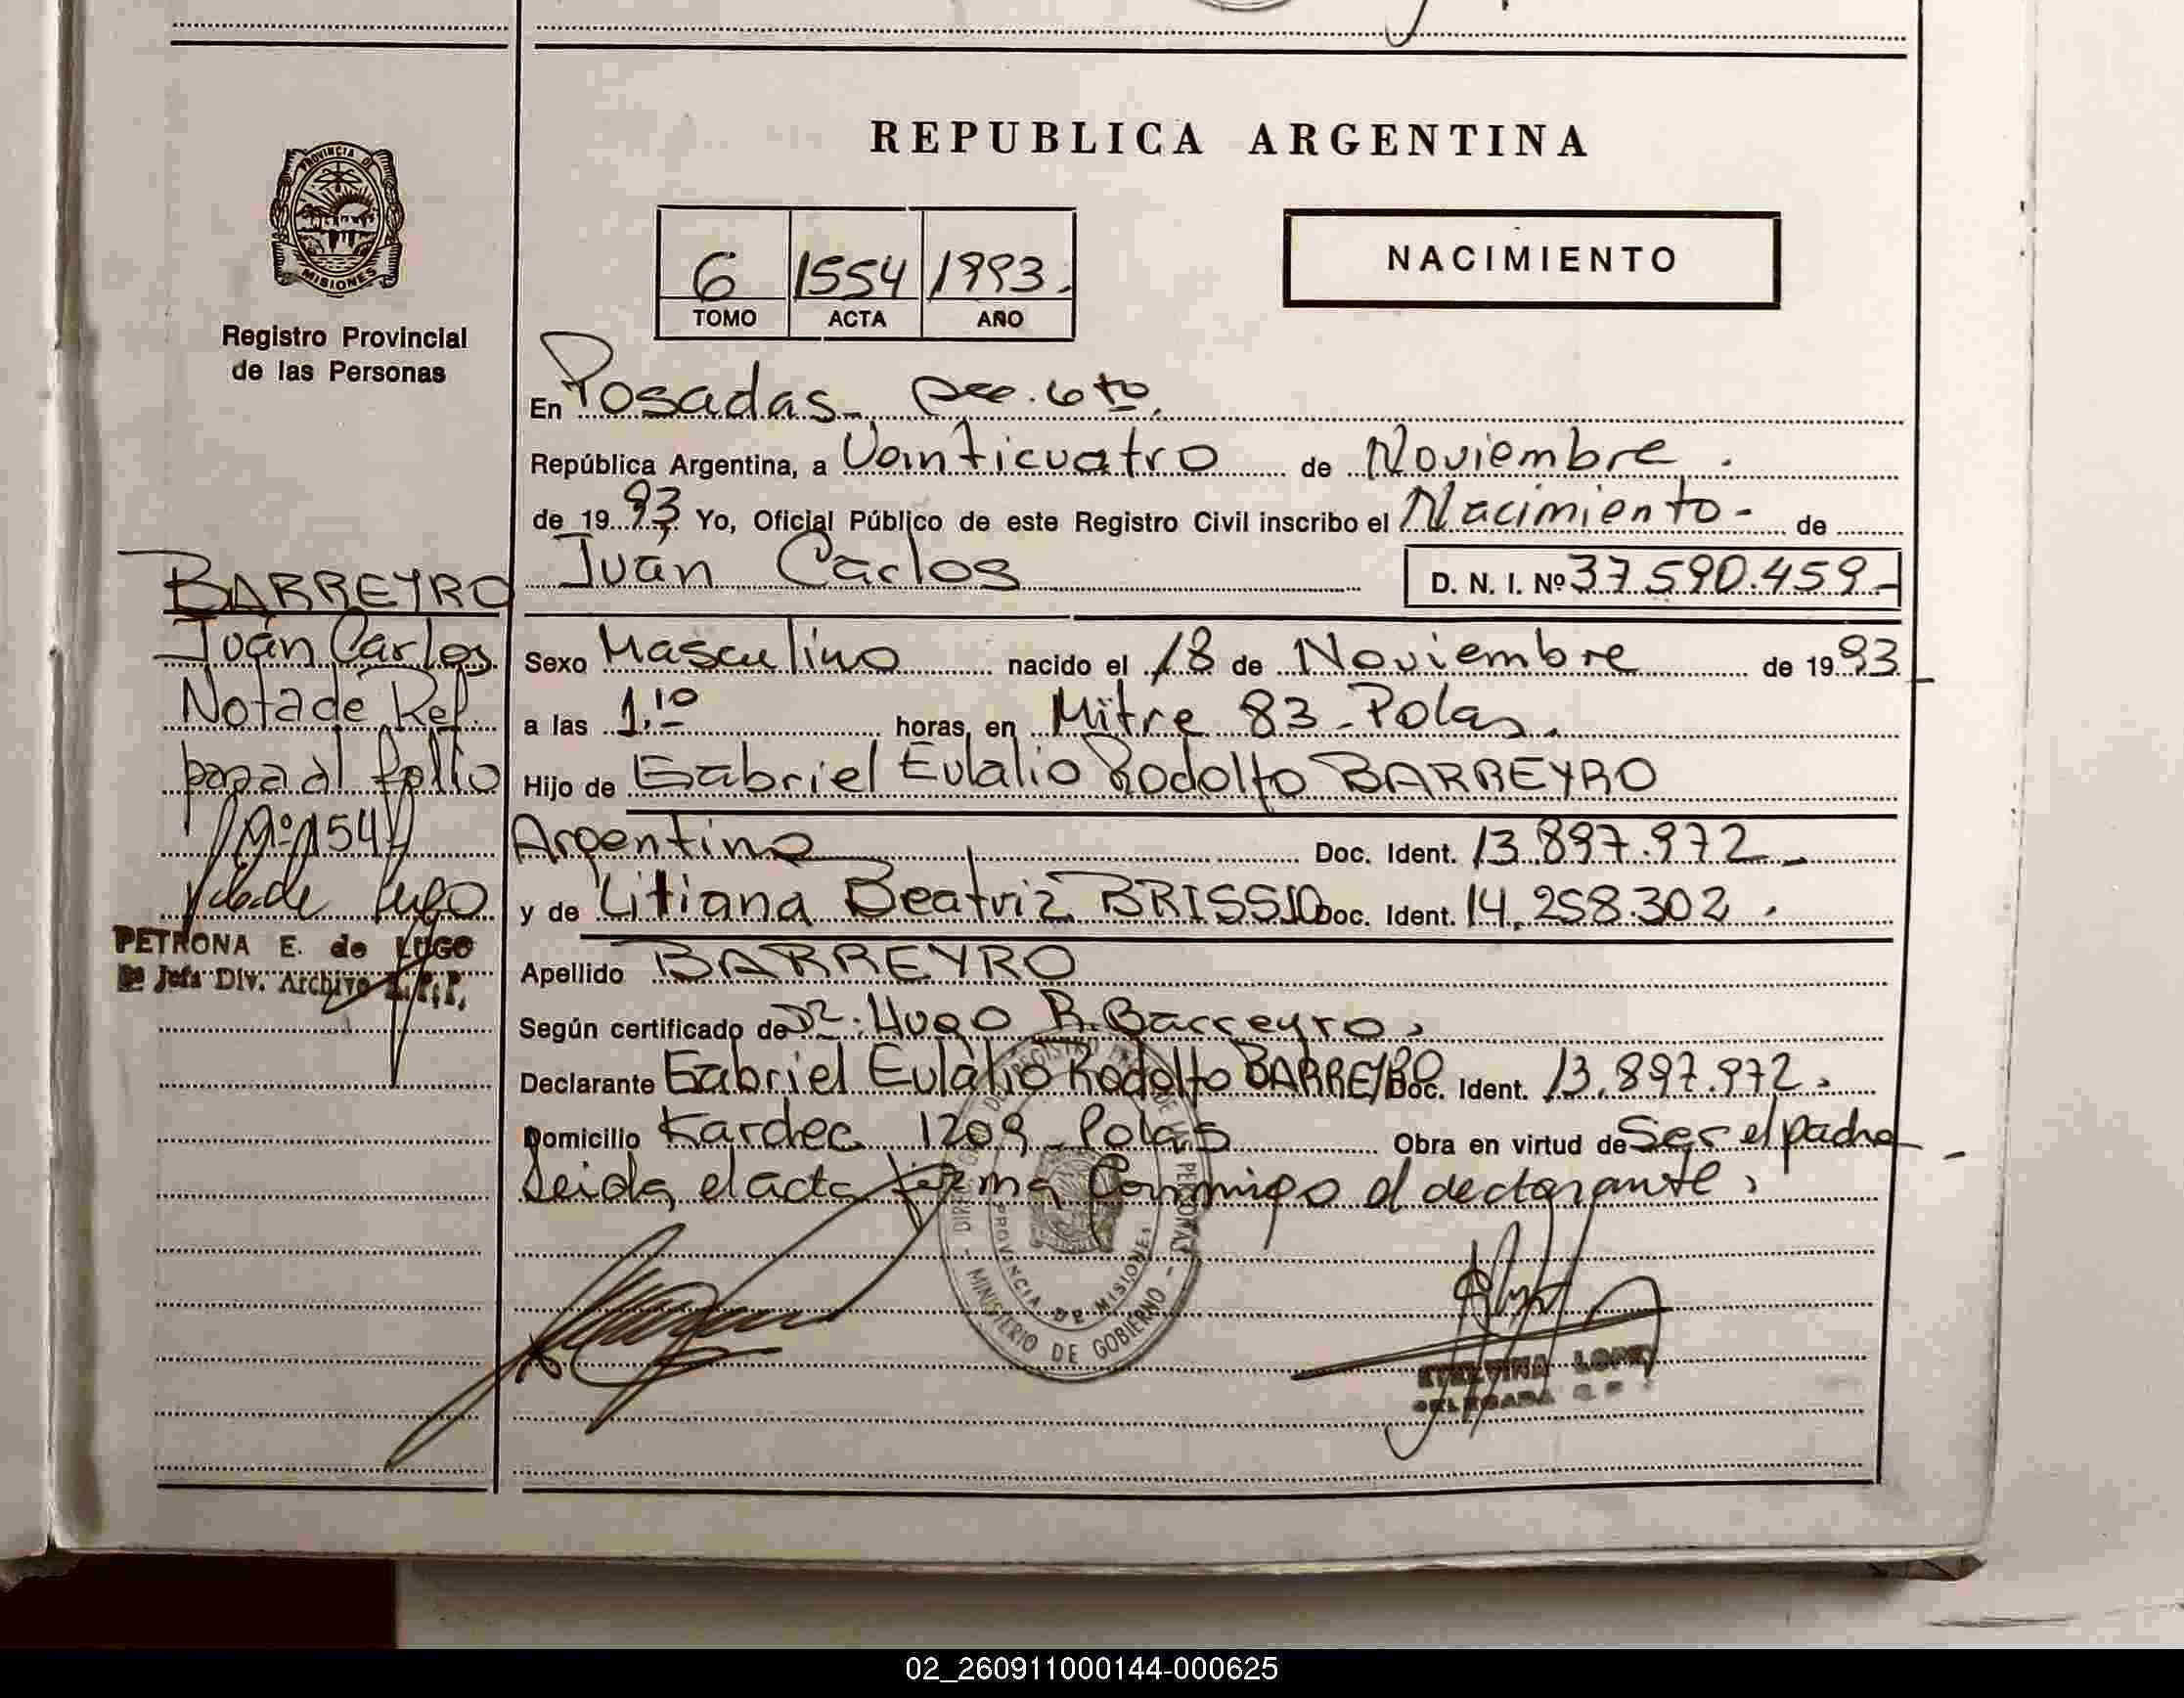 REPUBLICA ARGENTINA
PROVINCIA DE
MISIONES
Registro Provincial
de las Personas
NACIMIENTO
6 1554 1993.
TOMO ACTA AÑO
En Posadas - Sec. 6to.
República Argentina, a Veinticuatro de Noviembre.
de 1993. Yo, Oficial Público de este Registro Civil inscribo el Nacimiento - de
Juan Carlos D. N. I. Nº 37.590.459.-
Sexo Masculino nacido el 18 de Noviembre de 1993
a las 1,10 horas, en Mitre 83 - Pdas.
Hijo de Gabriel Eulalio Rodolfo BARREYRO
Argentino Doc. Ident. 13.897.972 -
y de Litiana Beatriz BRISSIO Doc. Ident. 14.258.302.
Apellido BARREYRO
Según certificado de Dr. Hugo R. Barreyro.
Declarante Gabriel Eulalio Rodolfo BARREYRO Doc. Ident. 13.897.972.
Domicilio Kardec 1209 - Pdas Obra en virtud de Ser el padre
Leida el acta firma conmigo el declarante.
BARREYRO
Juan Carlos
Nota de Ref.
pasa al folio
Nº 154
PETRONA E. de LUGO
Jefa Div. Archivo R.P.P.
PROVINCIA DE MISIONES
MINISTERIO DE GOBIERNO
ETELVINA LOPEZ
DELEGADA
02_260911000144-000625